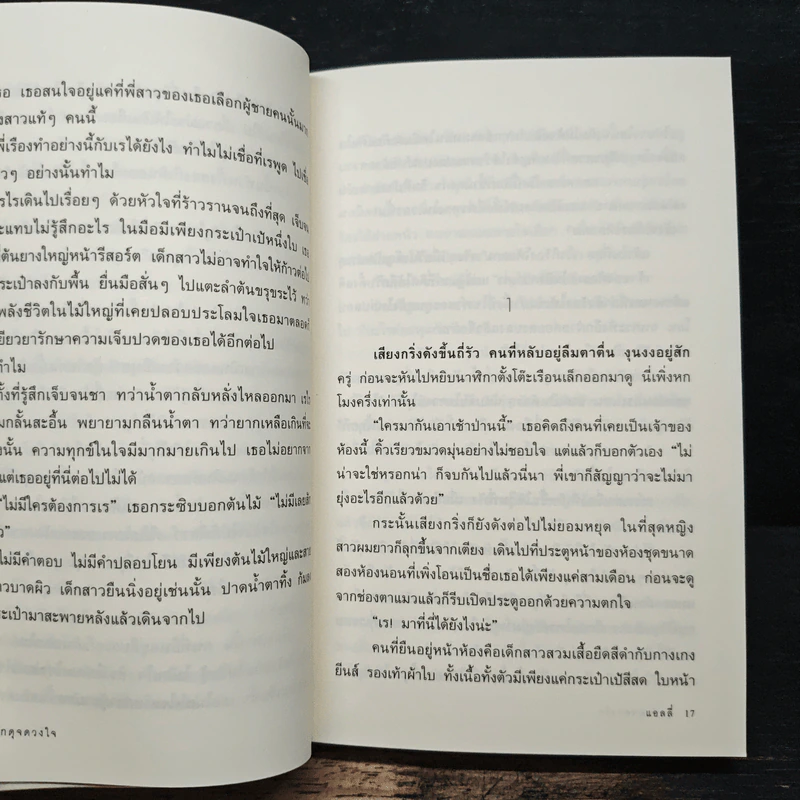 เธอสนใจอยู่แค่ที่พี่สาวของเธอเลือกผู้ชายคนนั้น
สาวแท้ๆ คนนี้
พี่เรืองทำอย่างนี้กับเรได้ยังไง ทำไมไม่เชื่อที่เรพูด
อย่างนั้นทำไม
เรไรเดินไปเรื่อยๆ ด้วยหัวใจที่ร้าวรานจนถึงที่สุด เจ็บจน
แทบไม่รู้สึกอะไร ในมือมีเพียงกระเป๋าเป้หนึ่งใบ เธอ
ต้นยางใหญ่หน้ารีสอร์ต เด็กสาวไม่อาจทำใจให้ก้าวต่อไป
กระเป๋าลงกับพื้น ยื่นมือสั่นๆ ไปแตะลำต้นขรุขระไว้
พลังชีวิตในไม้ใหญ่ที่เคยปลอบประโลมใจเธอมาตลอด
เยียวยารักษาความเจ็บปวดของเธอได้อีกต่อไป
ทำไม
ทั้งที่รู้สึกเจ็บจนชา ทว่าน้ำตากลับหลั่งไหลออกมา
กลั้นสะอื้น พยายามกลืนน้ำตา ทว่ายากเหลือเกินที่จะ
นั้น ความทุกข์ในใจมีมากมายเกินไป เธอไม่อยากจาก
แต่เธออยู่ที่นี่ต่อไปไม่ได้
“ไม่มีใครต้องการเร” เธอกระซิบบอกต้นไม้ “ไม่มีเลย
”
ไม่มีคำตอบ ไม่มีคำปลอบโยน มีเพียงต้นไม้ใหญ่และ
บาดผิว เด็กสาวยืนนิ่งอยู่เช่นนั้น ปาดน้ำตาทิ้ง
กระเป๋ามาสะพายหลังแล้วเดินจากไป
ดุจดวงใจ
1
เสียงกริ่งดังขึ้นถี่รัว คนที่หลับอยู่ลืมตาตื่น งุนงงอยู่สัก
ครู่ ก่อนจะหันไปหยิบนาฬิกาตั้งโต๊ะเรือนเล็กออกมาดู นี่เพิ่งหก
โมงครึ่งเท่านั้น
“ใครมากันเอาเช้าป่านนี้” เธอคิดถึงคนที่เคยเป็นเจ้าของ
ห้องนี้ คิ้วเรียวขมวดมุ่นอย่างไม่ชอบใจ แต่แล้วก็บอกตัวเอง “ไม่
น่าจะใช่หรอกน่า ก็จบกันไปแล้วนี่นา พี่เขาก็สัญญาว่าจะไม่มา
ยุ่งอะไรอีกแล้วด้วย”
กระนั้นเสียงกริ่งก็ยังดังต่อไปไม่ยอมหยุด ในที่สุดหญิง
สาวผมยาวก็ลุกขึ้นจากเตียง เดินไปที่ประตูหน้าของห้องชุดขนาด
สองห้องนอนที่เพิ่งโอนเป็นชื่อเธอได้เพียงแค่สามเดือน ก่อนจะดู
จากช่องตาแมวแล้วก็รีบเปิดประตูออกด้วยความตกใจ
“เร! มาที่นี่ได้ยังไงน่ะ”
คนที่ยืนอยู่หน้าห้องคือเด็กสาวสวมเสื้อยืดสีดำกับกางเกง
ยีนส์ รองเท้าผ้าใบ ทั้งเนื้อทั้งตัวมีเพียงแค่กระเป๋าเป้สีสด ใบหน้า
แอลลี่ 17